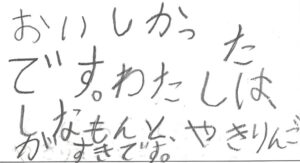 おいしかった
です。わたしは、
しなもんと、やきりんご
がすきです。